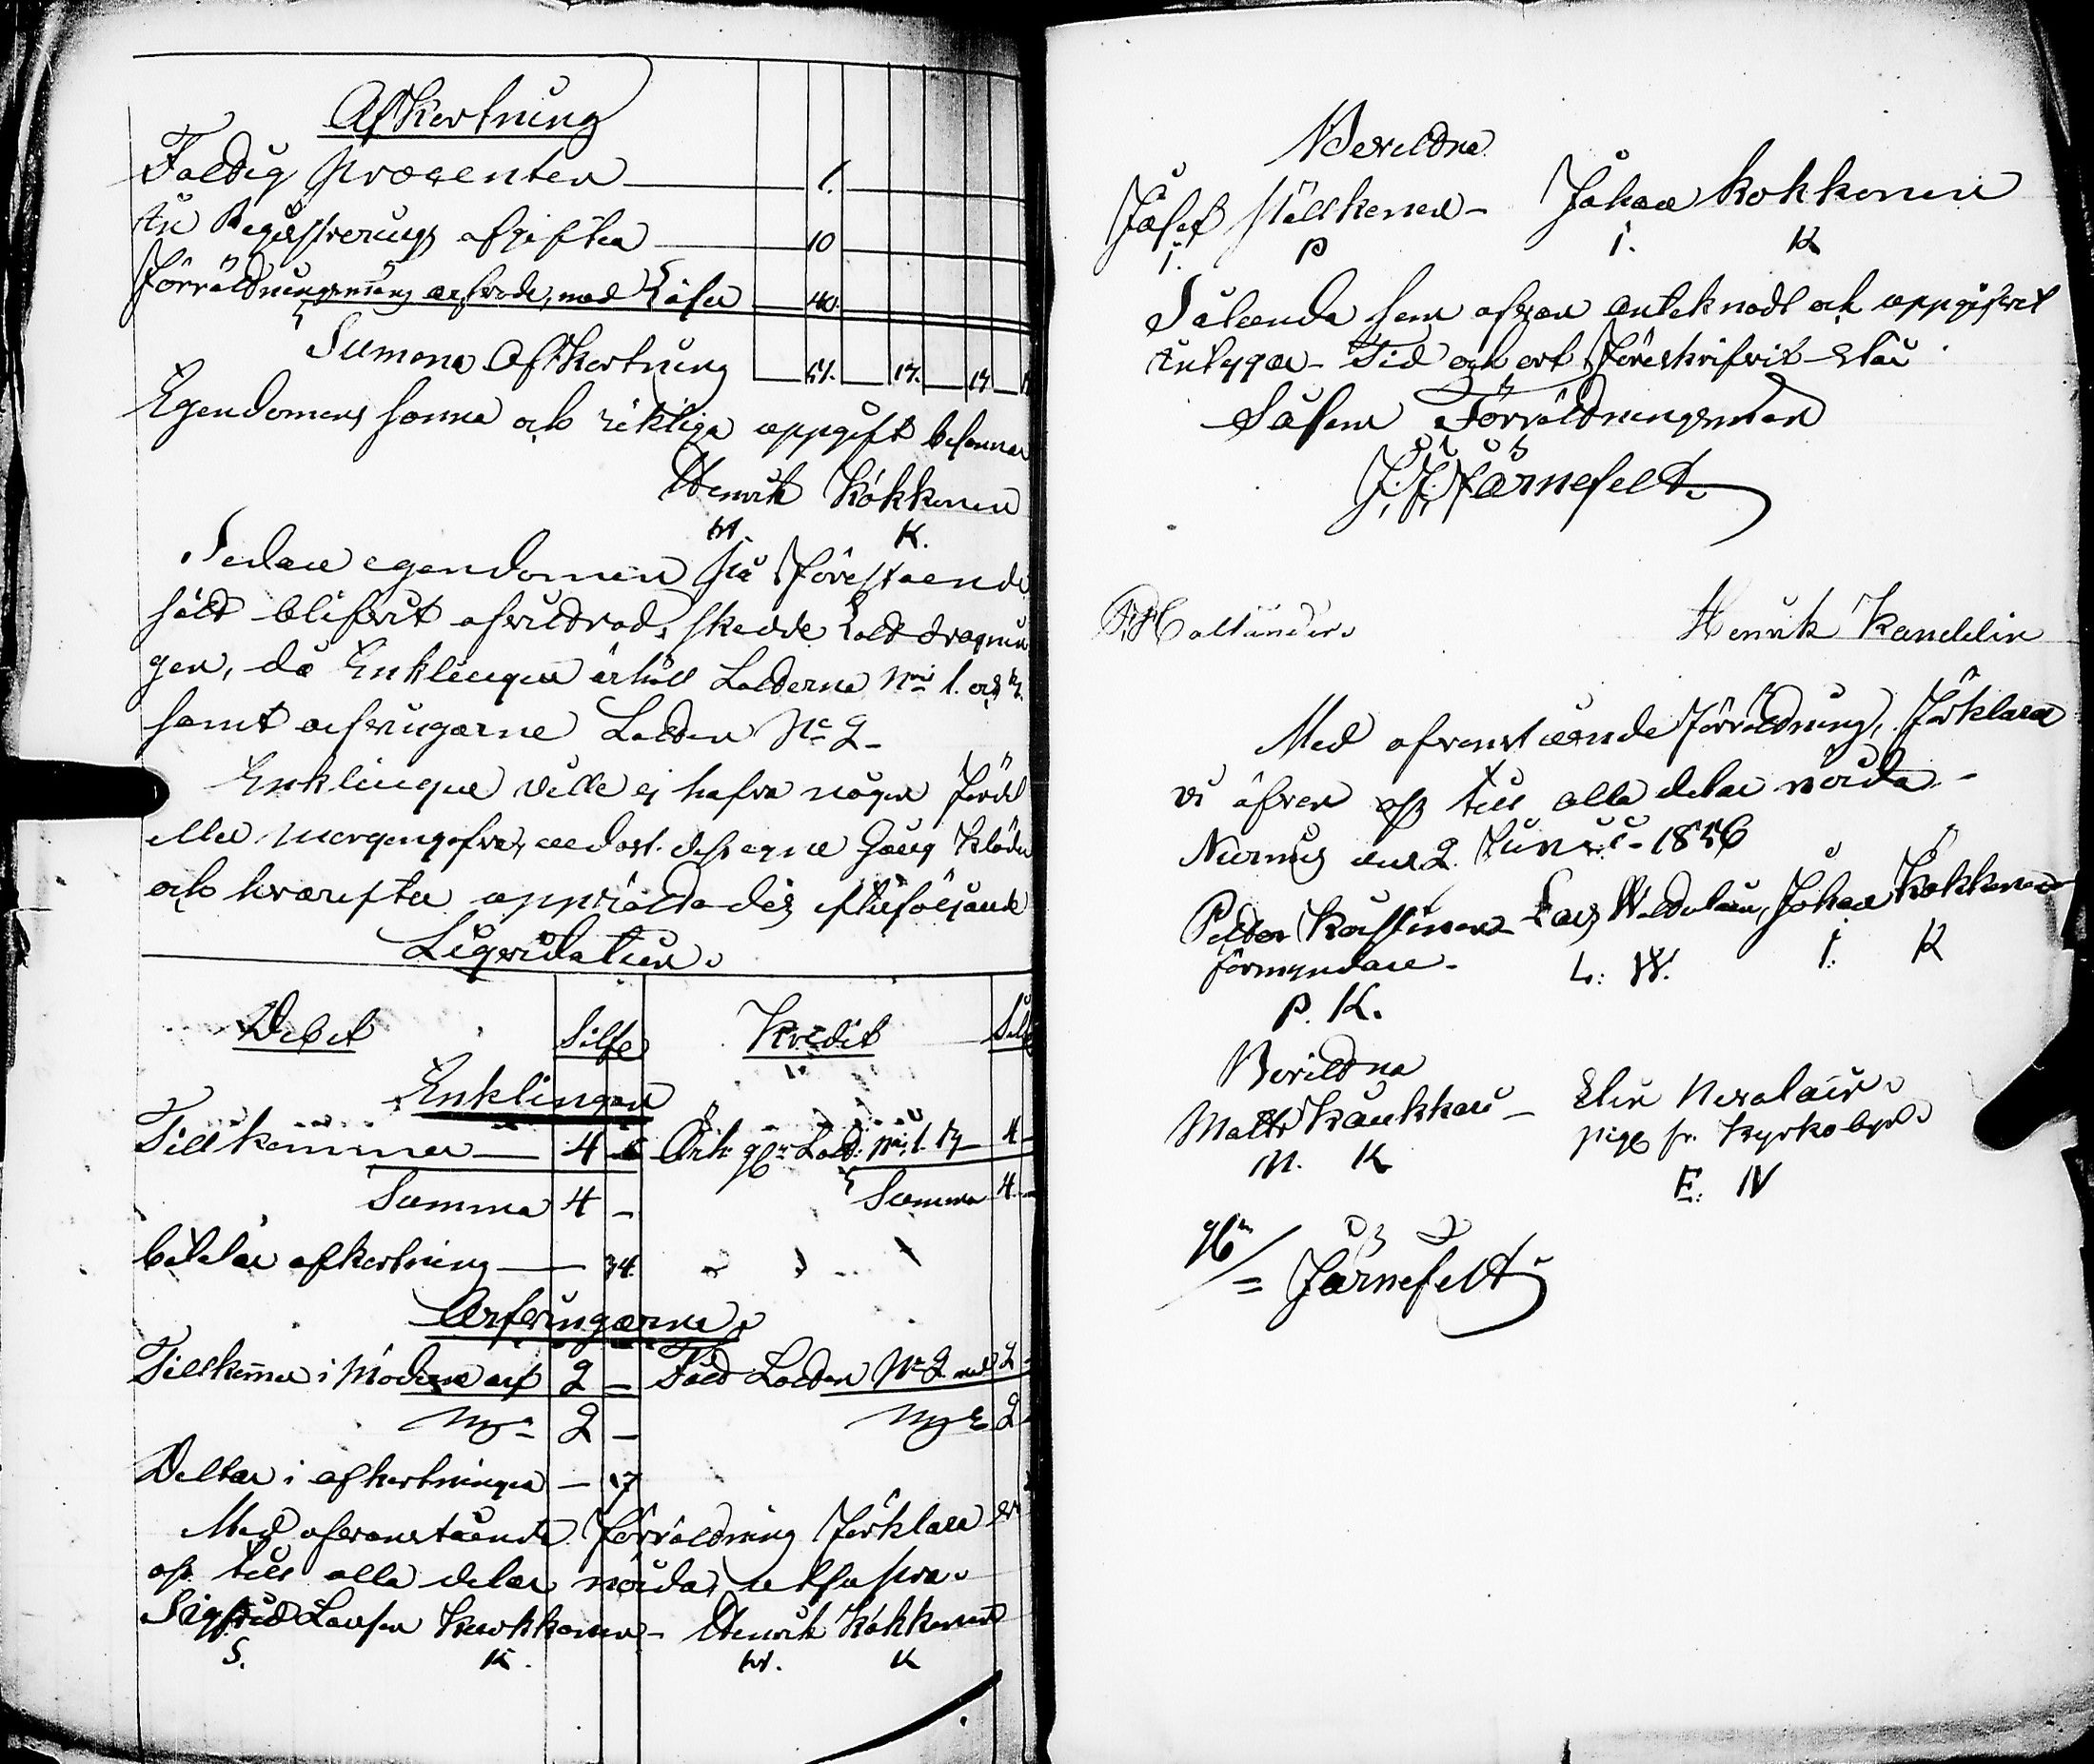 Afkortning
Fattig procenten 1.
Registrerings afgiften 10
Förrättningsmans arfvode, med Lösen 40.
Summa Afkortning 51. 17. 17
Egendomens sanna och riktiga uppgift besannar
Henrik Kokkonen
H. K.
Sedan egendomen på förestående
sätt blifvit afvittrad, skedde Lottdragnin
gen, då Enklingen erhöll Lotterna No 1. och 3.
samt arfvingarne Lotten No 2 -
Enklingen ville ej hafva någon fördel
eller morgongåfva, endast dess egne Gång kläder
och hvarefter upprättades efterföljande
Liqvidation.
Debet Silfr Kredit Silfr
Enklingen
Tillkommer 4 - Erh: gm Lott: No 1. 3 4 -
Summa 4 - Summa 4 -
betalar afkortning 34.
Arfvingarne
Tillkommer i Moders arf 2 - Fått Lotten No 2 med 2 -
2 - 2
Deltar i afkortningen - 17
Med ofvanstående förrättning förklara vi
oss till alla delar nöjda, ut supra.
Sigfrid Larsson Kokkonen - Henrik Kokkonen
S. K. H. K
Bevittna
Josef Pölkonen - Johan Kokkonen
I. P I. K
Sålunda som ofvan antecknadt och uppgifvet
intygar - Tid och ort föreskrifvit stå
Såsom Förrättningsman
J. J. Järnefelt.
Henrik Kandelin
Med ofvanstående förrättning, förklara
vi äfven oss till alla delar nöjda -
Nurmis den 2 Junii 1856
Petter Karstinen Lars Johan Kokkonen
förmyndare - L: W. I: K
P. K.
Bevittna
Matts Kaukkari - Elin
M. K piga fr. Kyrkobyn
E: N
gm
/= Järnefelt